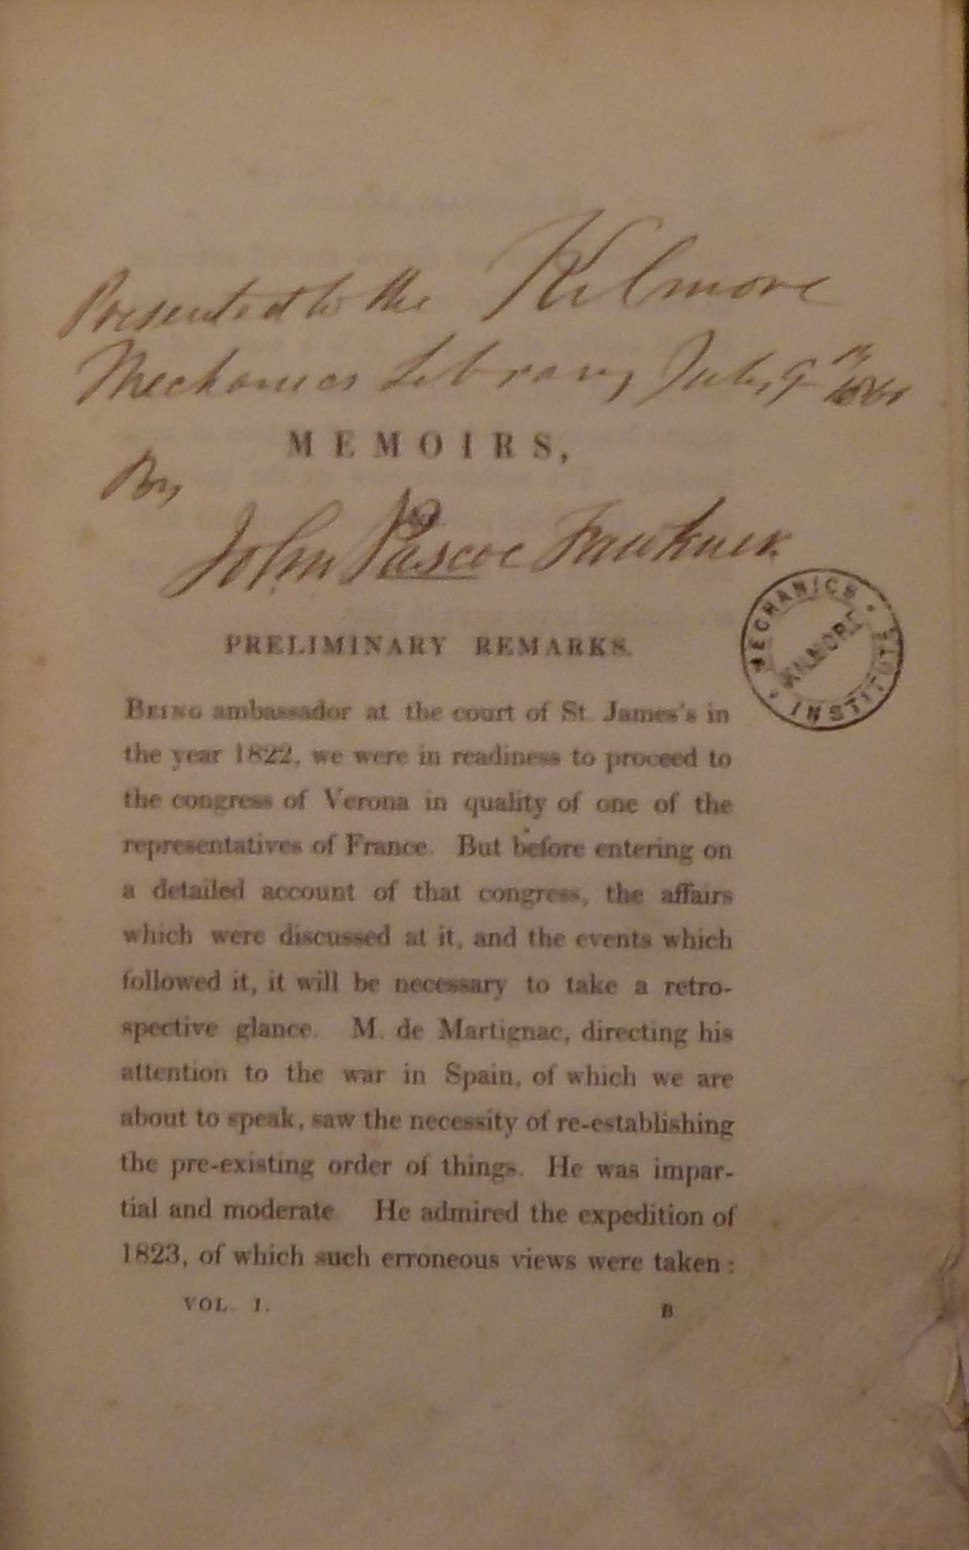 Presented to the Kilmore
Mechanics Library July 9th
MEMOIRS,
By
John Pascoe Fawkner
PRELIMINARY REMARKS.
MECHANICS INSTITUTE
KILMORE
BEING ambassador at the court of St. James's in
the year 1822, we were in readiness to proceed to
the congress of Verona in quality of one of the
representatives of France. But before entering on
a detailed account of that congress, the affairs
which were discussed at it, and the events which
followed it, it will be necessary to take a retro-
spective glance. M. de Martignac, directing his
attention to the war in Spain, of which we are
about to speak, saw the necessity of re-establishing
the pre-existing order of things. He was impar-
tial and moderate He admired the expedition of
1823, of which such erroneous views were taken:
VOL. I.
B